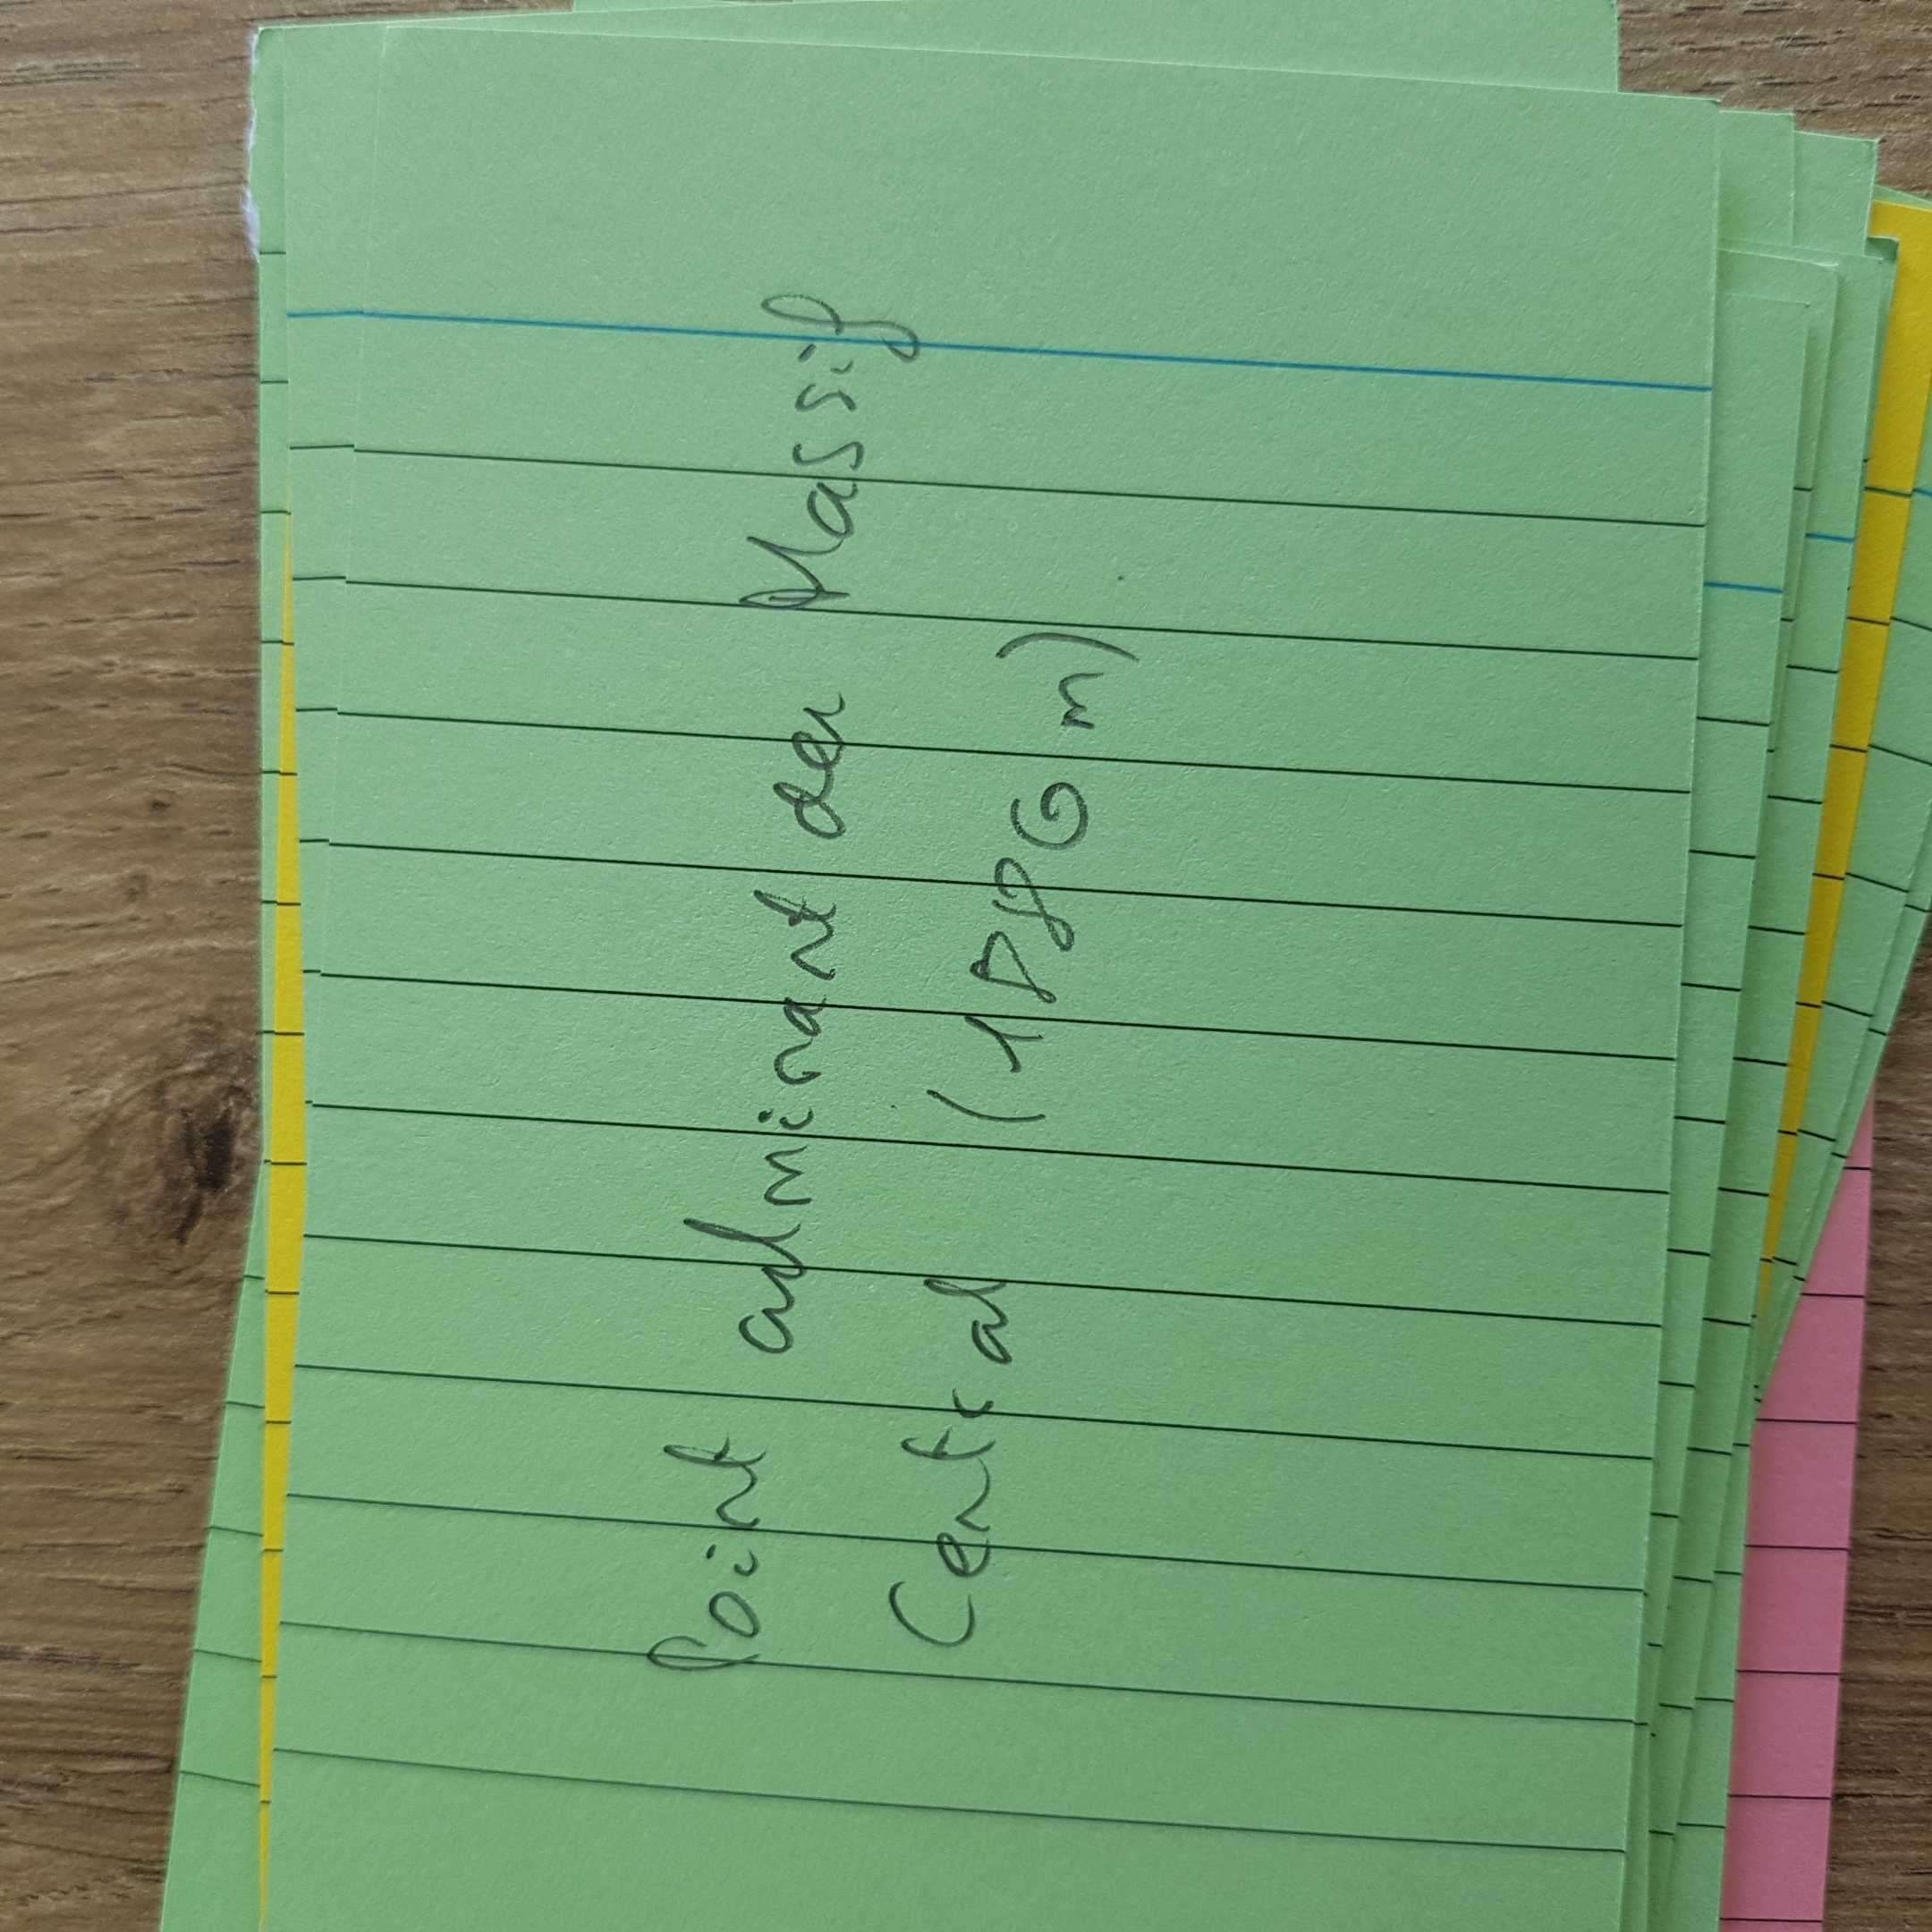 Point culminant du Massif
Central (1886 m)